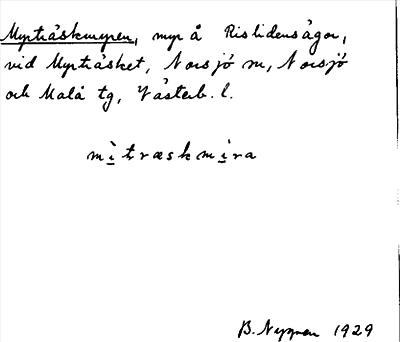 Myrträskmyren, myr å Rislidens ägor,
vid Myrträsket, Norsjö sn, Norsjö
och Malå tg, Västerb. l.
mi̱træskmi̱ra
B. Nygren 1929